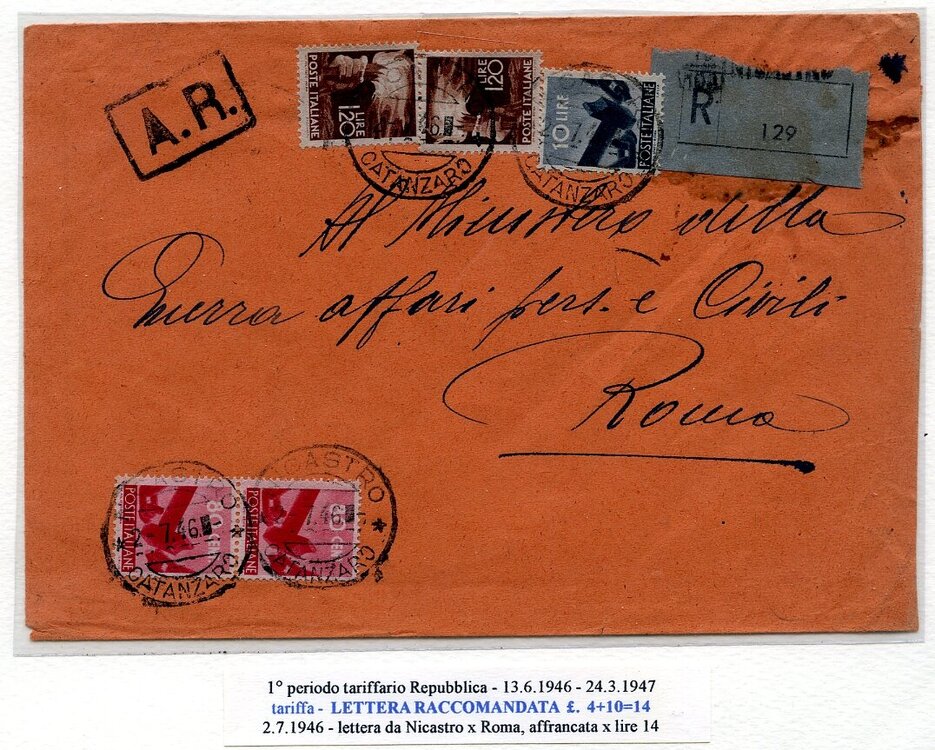 A.R.
POSTE ITALIANE
LIRE 1,20
LIRE 1,20
POSTE ITALIANE
10 LIRE
POSTE ITALIANE
CATANZARO
CATANZARO
NICASTRO
R
129
Al Ministero della
Guerra affari pers. e Civili
Roma
POSTE ITALIANE
80 CENT
POSTE ITALIANE
CATANZARO
NICASTRO
7.46
CATANZARO
1° periodo tariffario Repubblica - 13.6.1946 - 24.3.1947
tariffa - LETTERA RACCOMANDATA £. 4+10=14
2.7.1946 - lettera da Nicastro x Roma, affrancata x lire 14